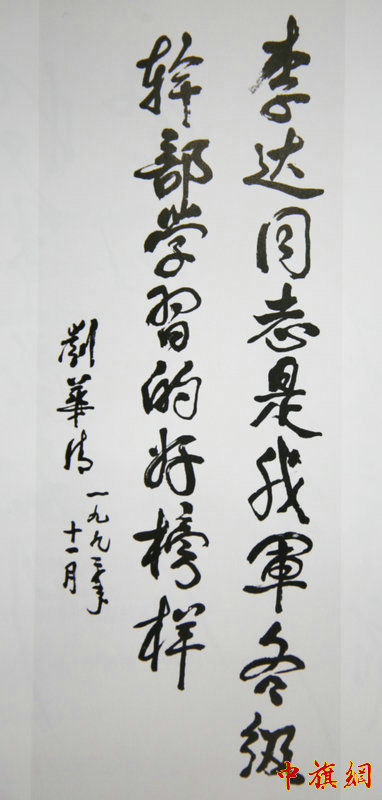 李达同志是我军各级
幹部学习的好榜样
劉華清
一九九三年
十一月
中旗網